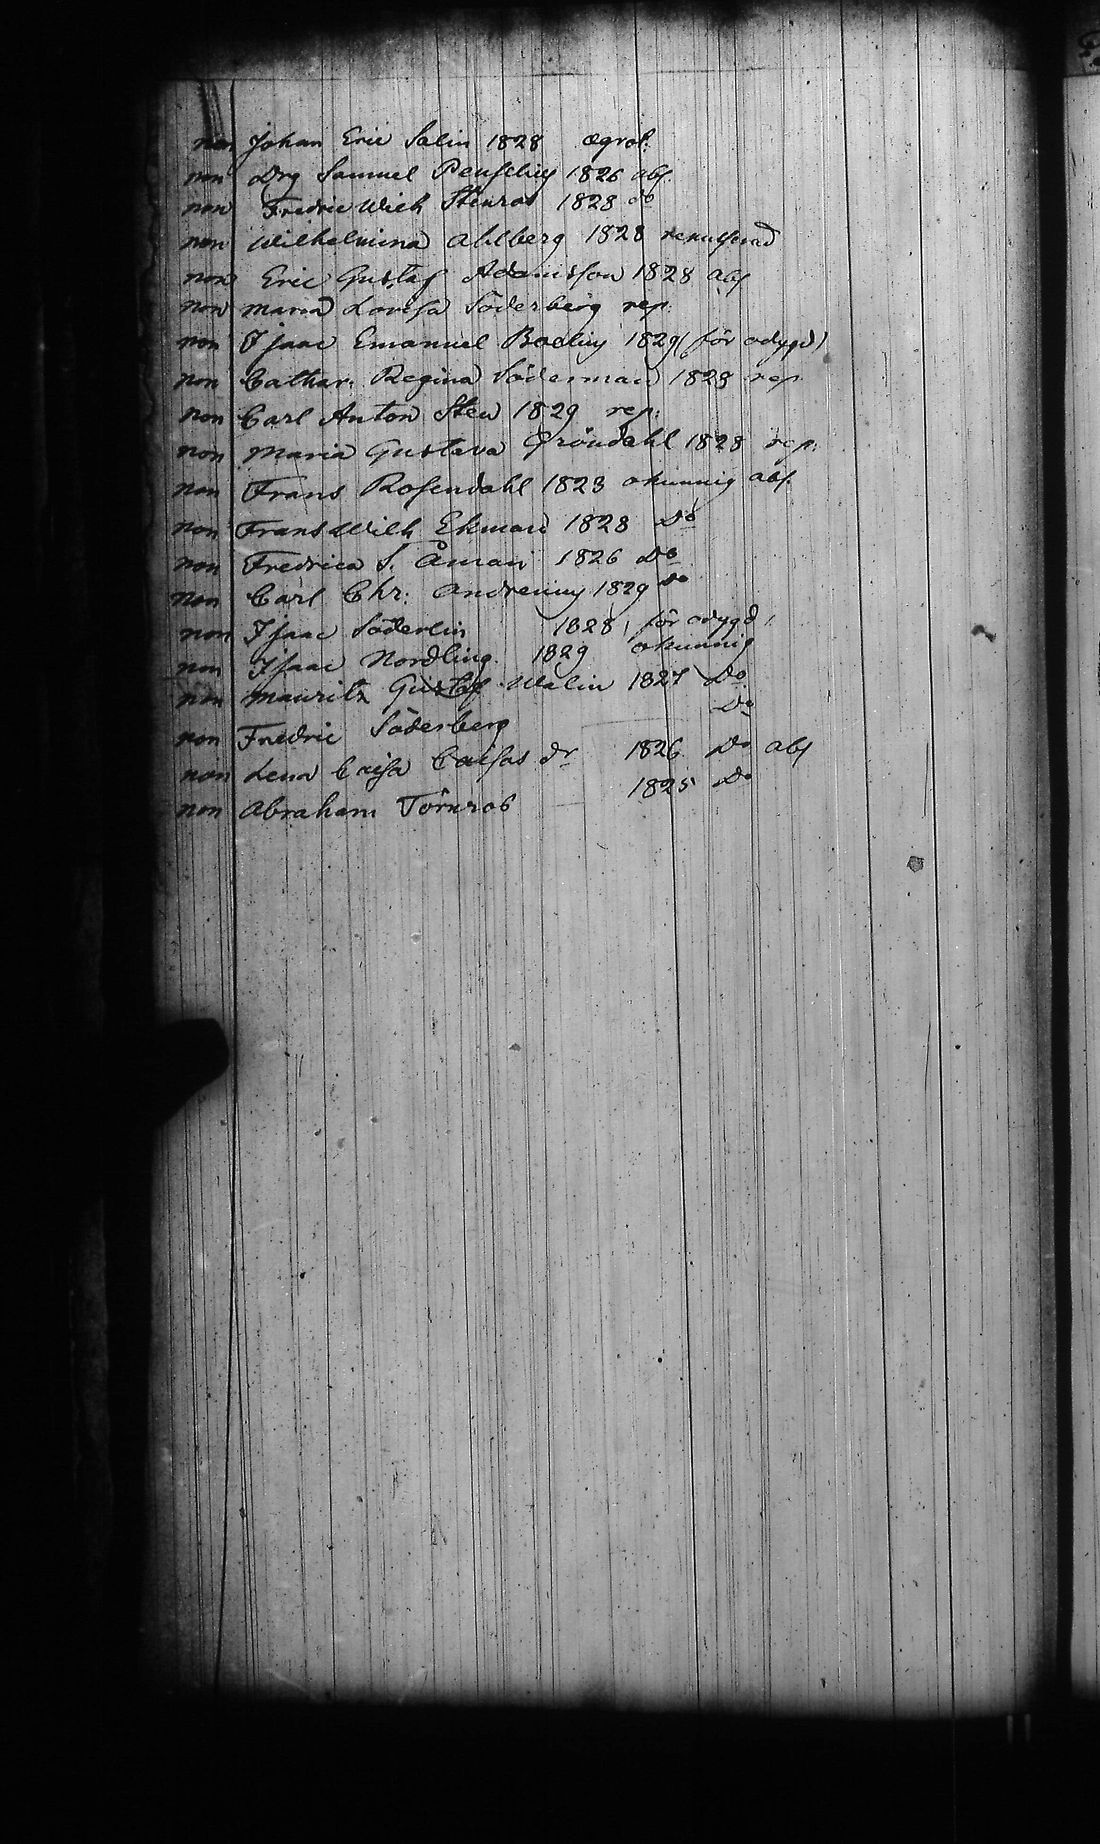 non Johan Eric Salin 1828 ægrot.
non Drg Samuel 1826 abs.
non Fredric Wilh Stenros 1828 do
non Wilhelmina Ahlberg 1828 repulserad
non Eric Gustaf Adamsson 1828 abs
non Maria Lovisa Söderberg rep.
non Isaac Emanuel Boelius 1829 (för odygd)
non Cathar. Regina Söderman 1828 rep.
non Carl Anton Sten 1829 rep.
non Maria Gustava Gröndahl 1828 rep.
non Frans Rosendahl 1828 okunnig abs.
non Frans Wilh Ekman 1828 Do
non Fredrica S. Åman 1826 Do
non Carl Chr. 1829 Do
non Isaac Söderlin 1828, för odygd,
non Isaac Nordling 1829 okunnig
non Mauritz Gustaf Walin 1827 Do
non Fredric Söderberg Do
non Lena Caisa dr 1826 Do abs
non Abraham Törnros 1825 Do